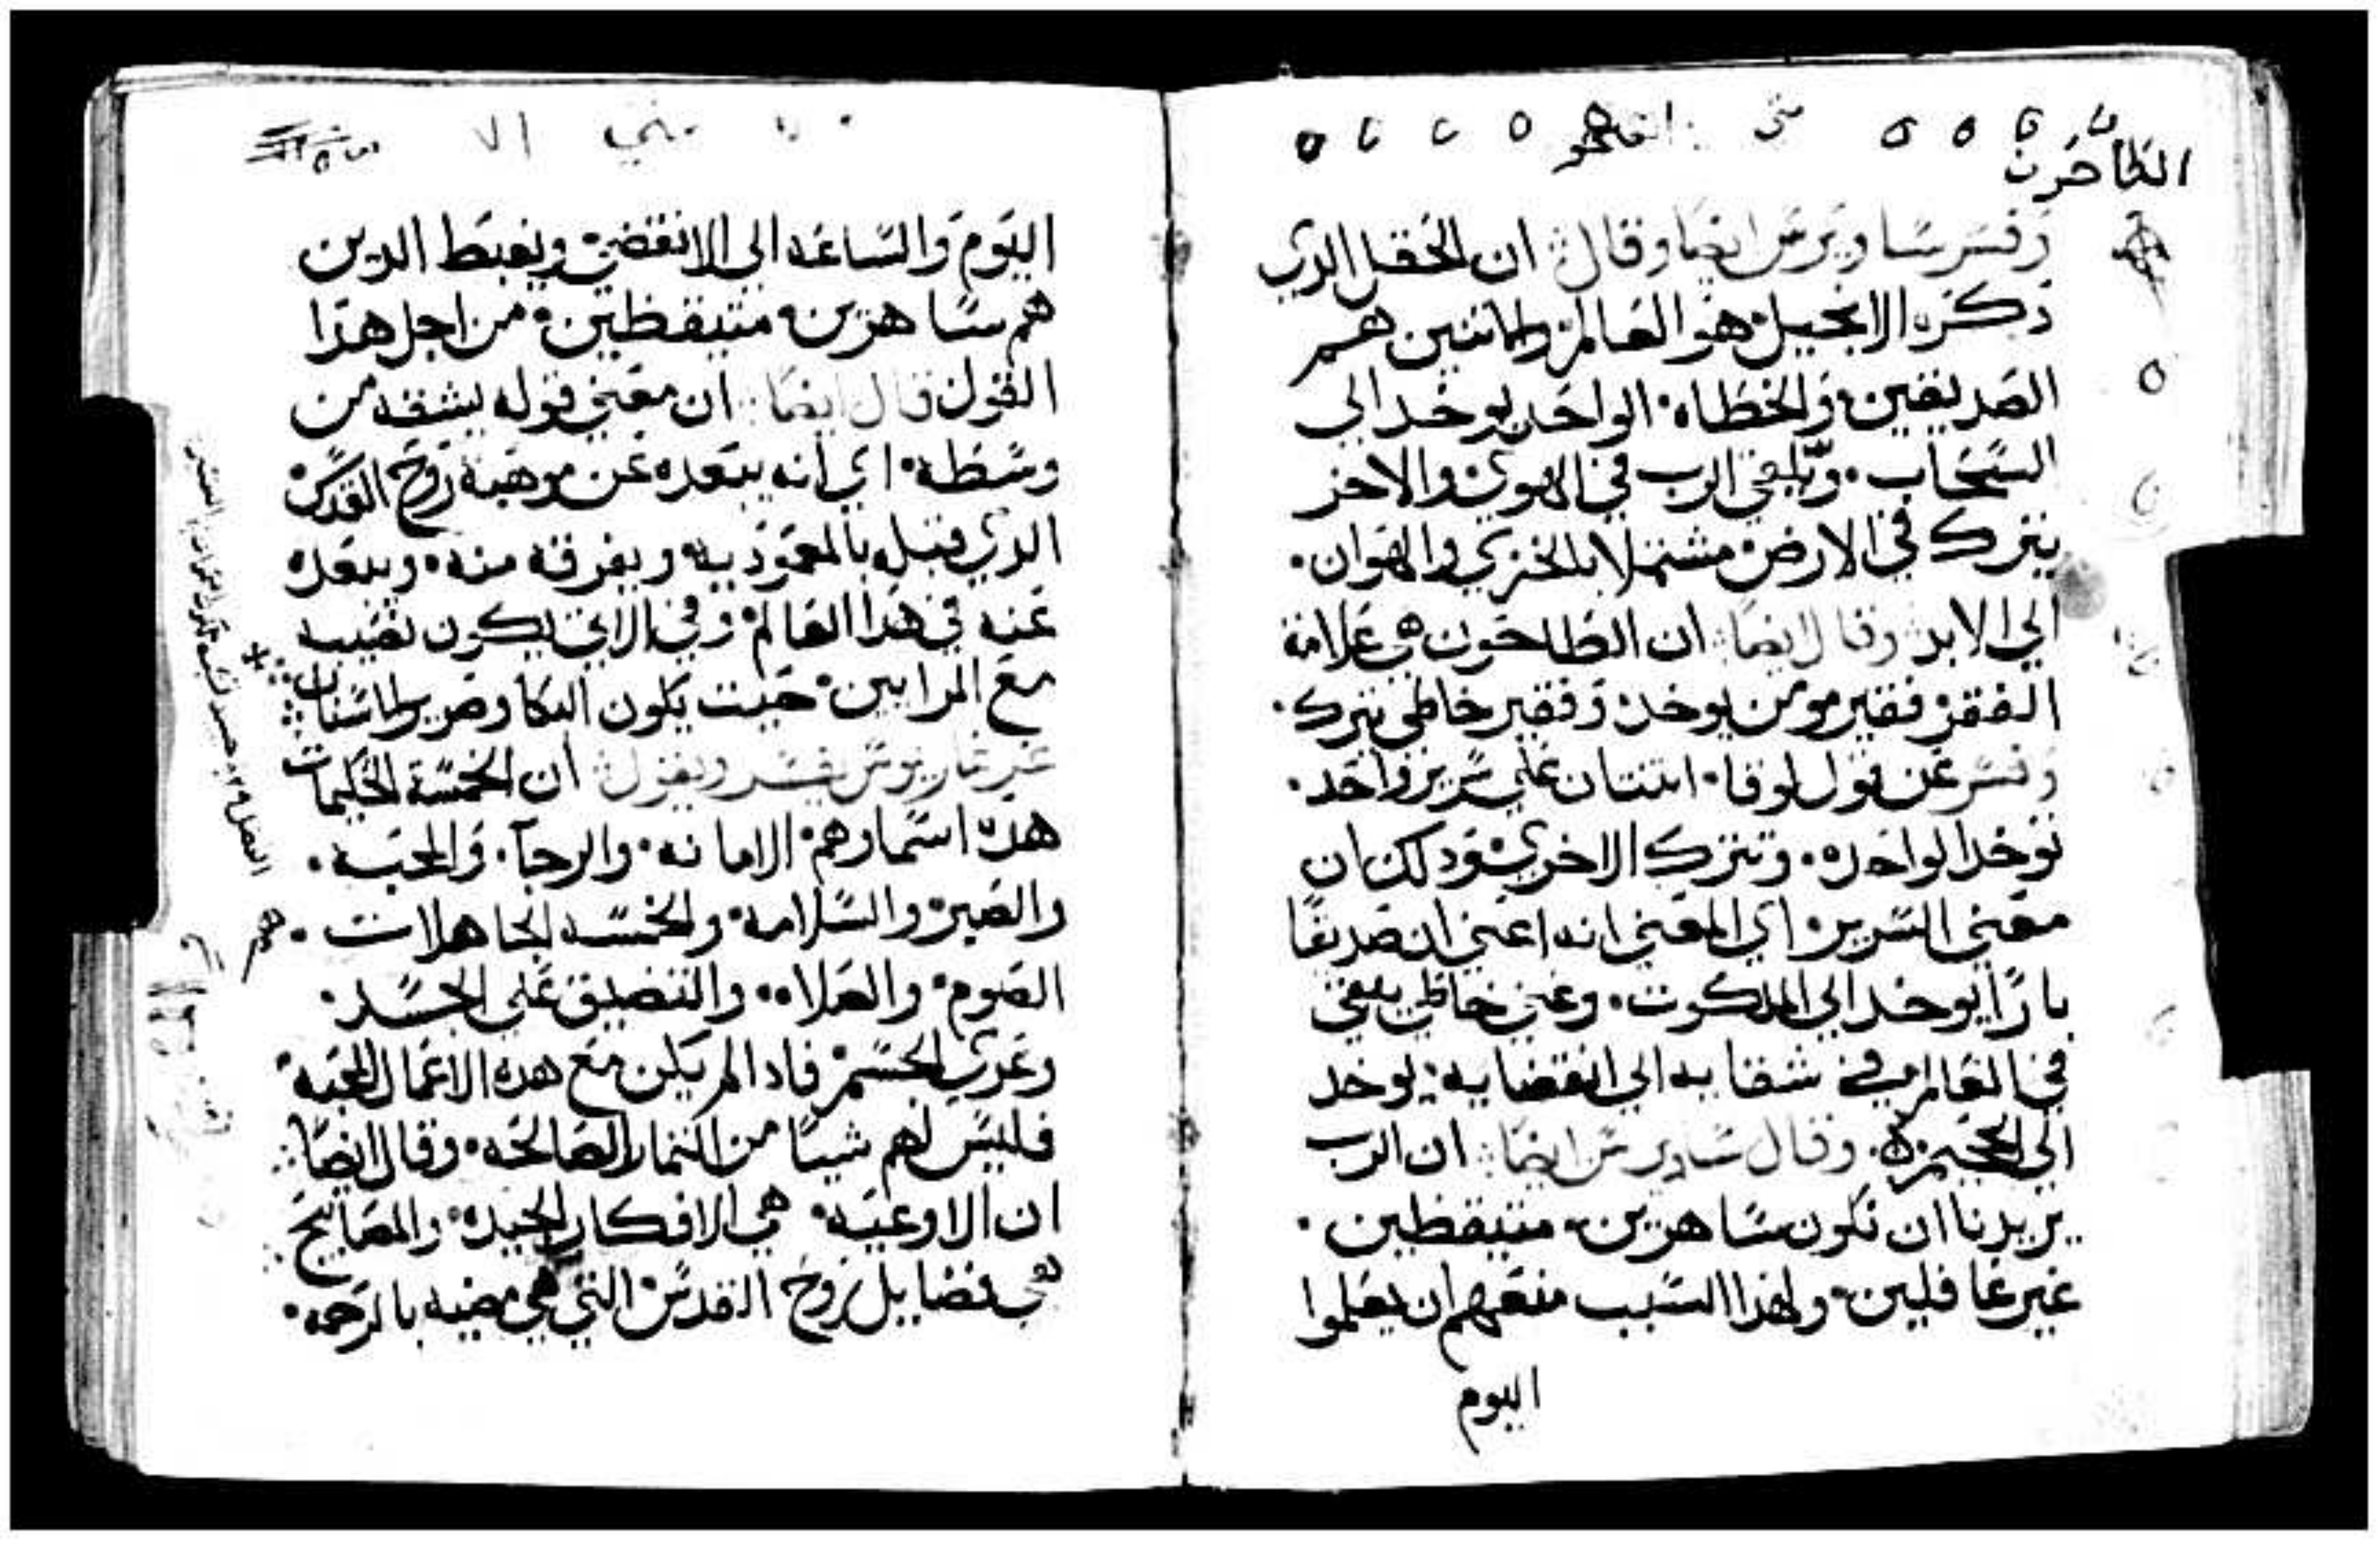 متى
الطاحون
وفسر ساويرس ايضا وقال ان الحقل الدي
ذكره الانجيل هو العالم والاتنين هم
الصديقين والخطاه الواحد يوخد الي
السحاب ويلتقي الرب في الهوي والاخر
يترك في الارض مشتملا بالخزي والهوان
الي الابد وقال ايضا ان الطاحون هي علامة
الفقر فقير مومن يوخد وفقير خاطي يترك
وفسر عن قول لوقا اتنتان علي سرير واحد
توخد الواحده وتترك الاخري ودلك ان
معني السرير اي المعني انه اعني ان صديقا
بارا يوخد الي الملكوت وعني خاطي يبقي
في العالم في شقايه الي انقضايه يوخد
الي الجحيم وقال ساويرس ايضا ان الرب
يريدنا ان نكون ساهرين متيقظين
غير غافلين ولهذا السبب منعهم ان يعلموا
اليوم
متي
اليوم والساعه الي الانقضي ويغبط الدين
هم ساهرين متيقظين من اجل هدا
القول قال ايضا ان معني قوله يشقه من
وسطه اي انه يبعده عن موهبة روح القدس
الدي قبله بالمعموديه ويفرقه منه ويبعده
عنه في هدا العالم وفي الاتي يكون نصيبه
مع المرايين حيت يكون البكا وصرير الاسنان
غريغاريوس يفسر ويقول ان الخمسة الحكيمات
هده اسمارهم الامانه والرجا والمحبه
والصبر والسلامه والخمسه الجاهلات
الصوم والصلاه والتضيق علي الجسد
وعري الجسم فادا لم يكن مع هده الاعمال المحبه
فليس لهم شيا من التمار الصالحه وقال ايضا
ان الاوعيه هي الافكار الجيده والمصابيح
هي فضايل روح القدس التي هي مضيه بالرحمه